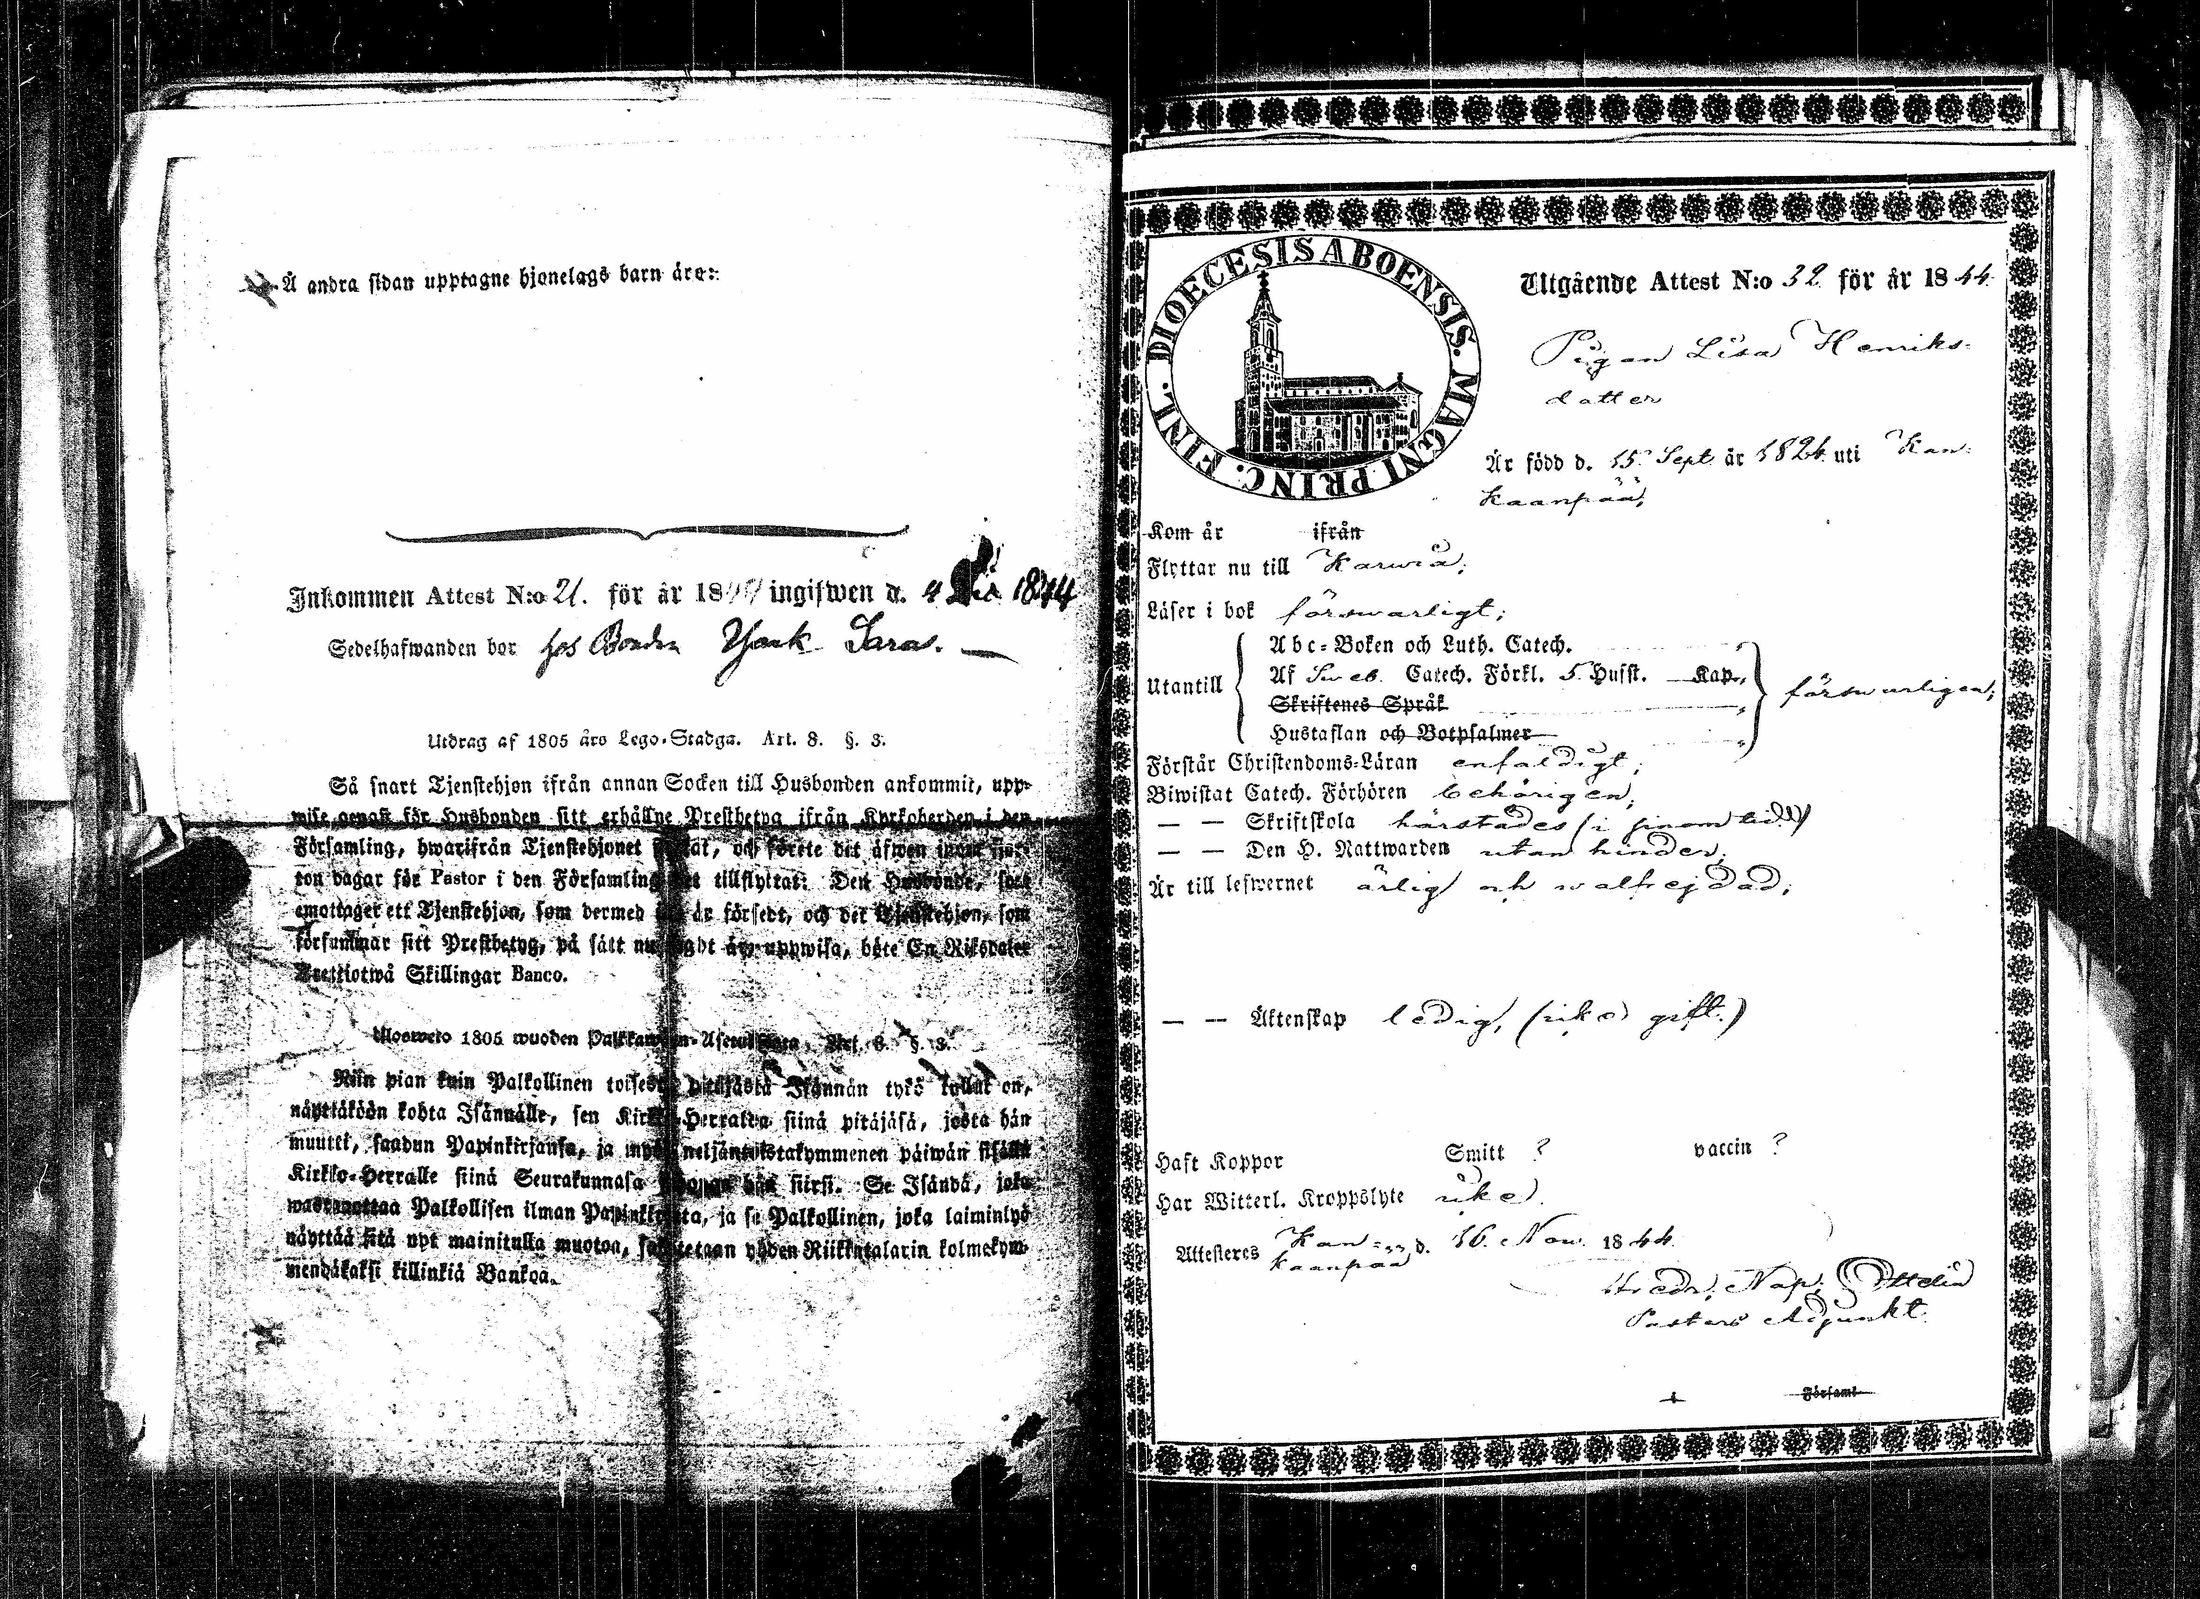 Å andra sidan upptagne hjonelags barn äro:
Inkommen Attest N:o 21. för år 1844 ingifwen d. 4 1844
Sedelhafwanden bor hos Bonden Isak Sara.
Utdrag af 1805 års Lego-Stadga. Art. 8. §. 3.
Så snart Tjenstehjon ifrån annan Socken till Husbonden ankommit, upp-
wise genast för Husbonden sitt erhållne Prestbetyg ifrån Kyrkoherden i den
Församling, hwarifrån Tjenstehjonet och förete det äfwen inom fjor-
ton dagar för Pastor i den Församling tillflyttat. Den Husbonde, som
emottager ett Tjenstehjon, som dermed är försedt, och det Tjenstehjon, som
försummar sitt Prestbetyg, på sätt nu sagdt är, uppwisa, böte En Riksdaler
Trettiotwå Skillingar Banco.
Uloswelo 1805 wuoden Palkkawäen-Asetuksesta, Art. 8. §. 3.
Niin pian kuin Palkollinen toisesta pitäjästä Isännän tykö tullut on,
näyttäköön kohta Isännälle, sen Kirkko-Herralta siinä pitäjäsä, josta hän
muutti, saadun Papinkirjansa, ja myös neljäntoistakymmenen päiwän sisällä
Kirkko-Herralle siinä Seurakunnasa hän siirsi. Se Isändä, joka
wastaanottaa Palkollisen ilman Papinkirjata, ja se Palkollinen, joka laiminlyö
näyttää sitä nyt mainitulla muotoa, sakotetaan yhden Riikintalarin kolmekym-
mendäkaksi killinkiä Bankoa.
DIOECESIS ABOENSIS. MAGNI PRINC. FINL.
Utgående Attest N:o 32 för år 1844.
Pigan Lisa Henriks-
dotter
Är född d. 15. Sept. år 1824. uti Kan-
kaanpää;
Kom år ifrån
Flyttar nu till Karwia;
Läser i bok förswarligt;
Abc-Boken och Luth. Catech.
Utantill Af Sweb. Catech. Förkl. 5. Husst. Kap. förswarligen;
Skriftenes Språk
Hustaflan och Botpsalmer
Förstår Christendoms-Läran enfaldigt;
Biwistat Catech. Förhören behörigen;
— — Skriftskola härstädes (i sinom tid.)
— — Den H. Nattwarden utan hinder;
Är till lefwernet ärlig och wälfrejdad;
— — Äktenskap ledig, (icke gift.)
Haft Koppor Smitt ? vaccin ?
Har Witterl. Kroppslyte icke.
Attesteras Kan-
kaanpää d. 16. Nov. 1844.
Fredr. Nap.
Pastors Adjunkt.
i Församl.